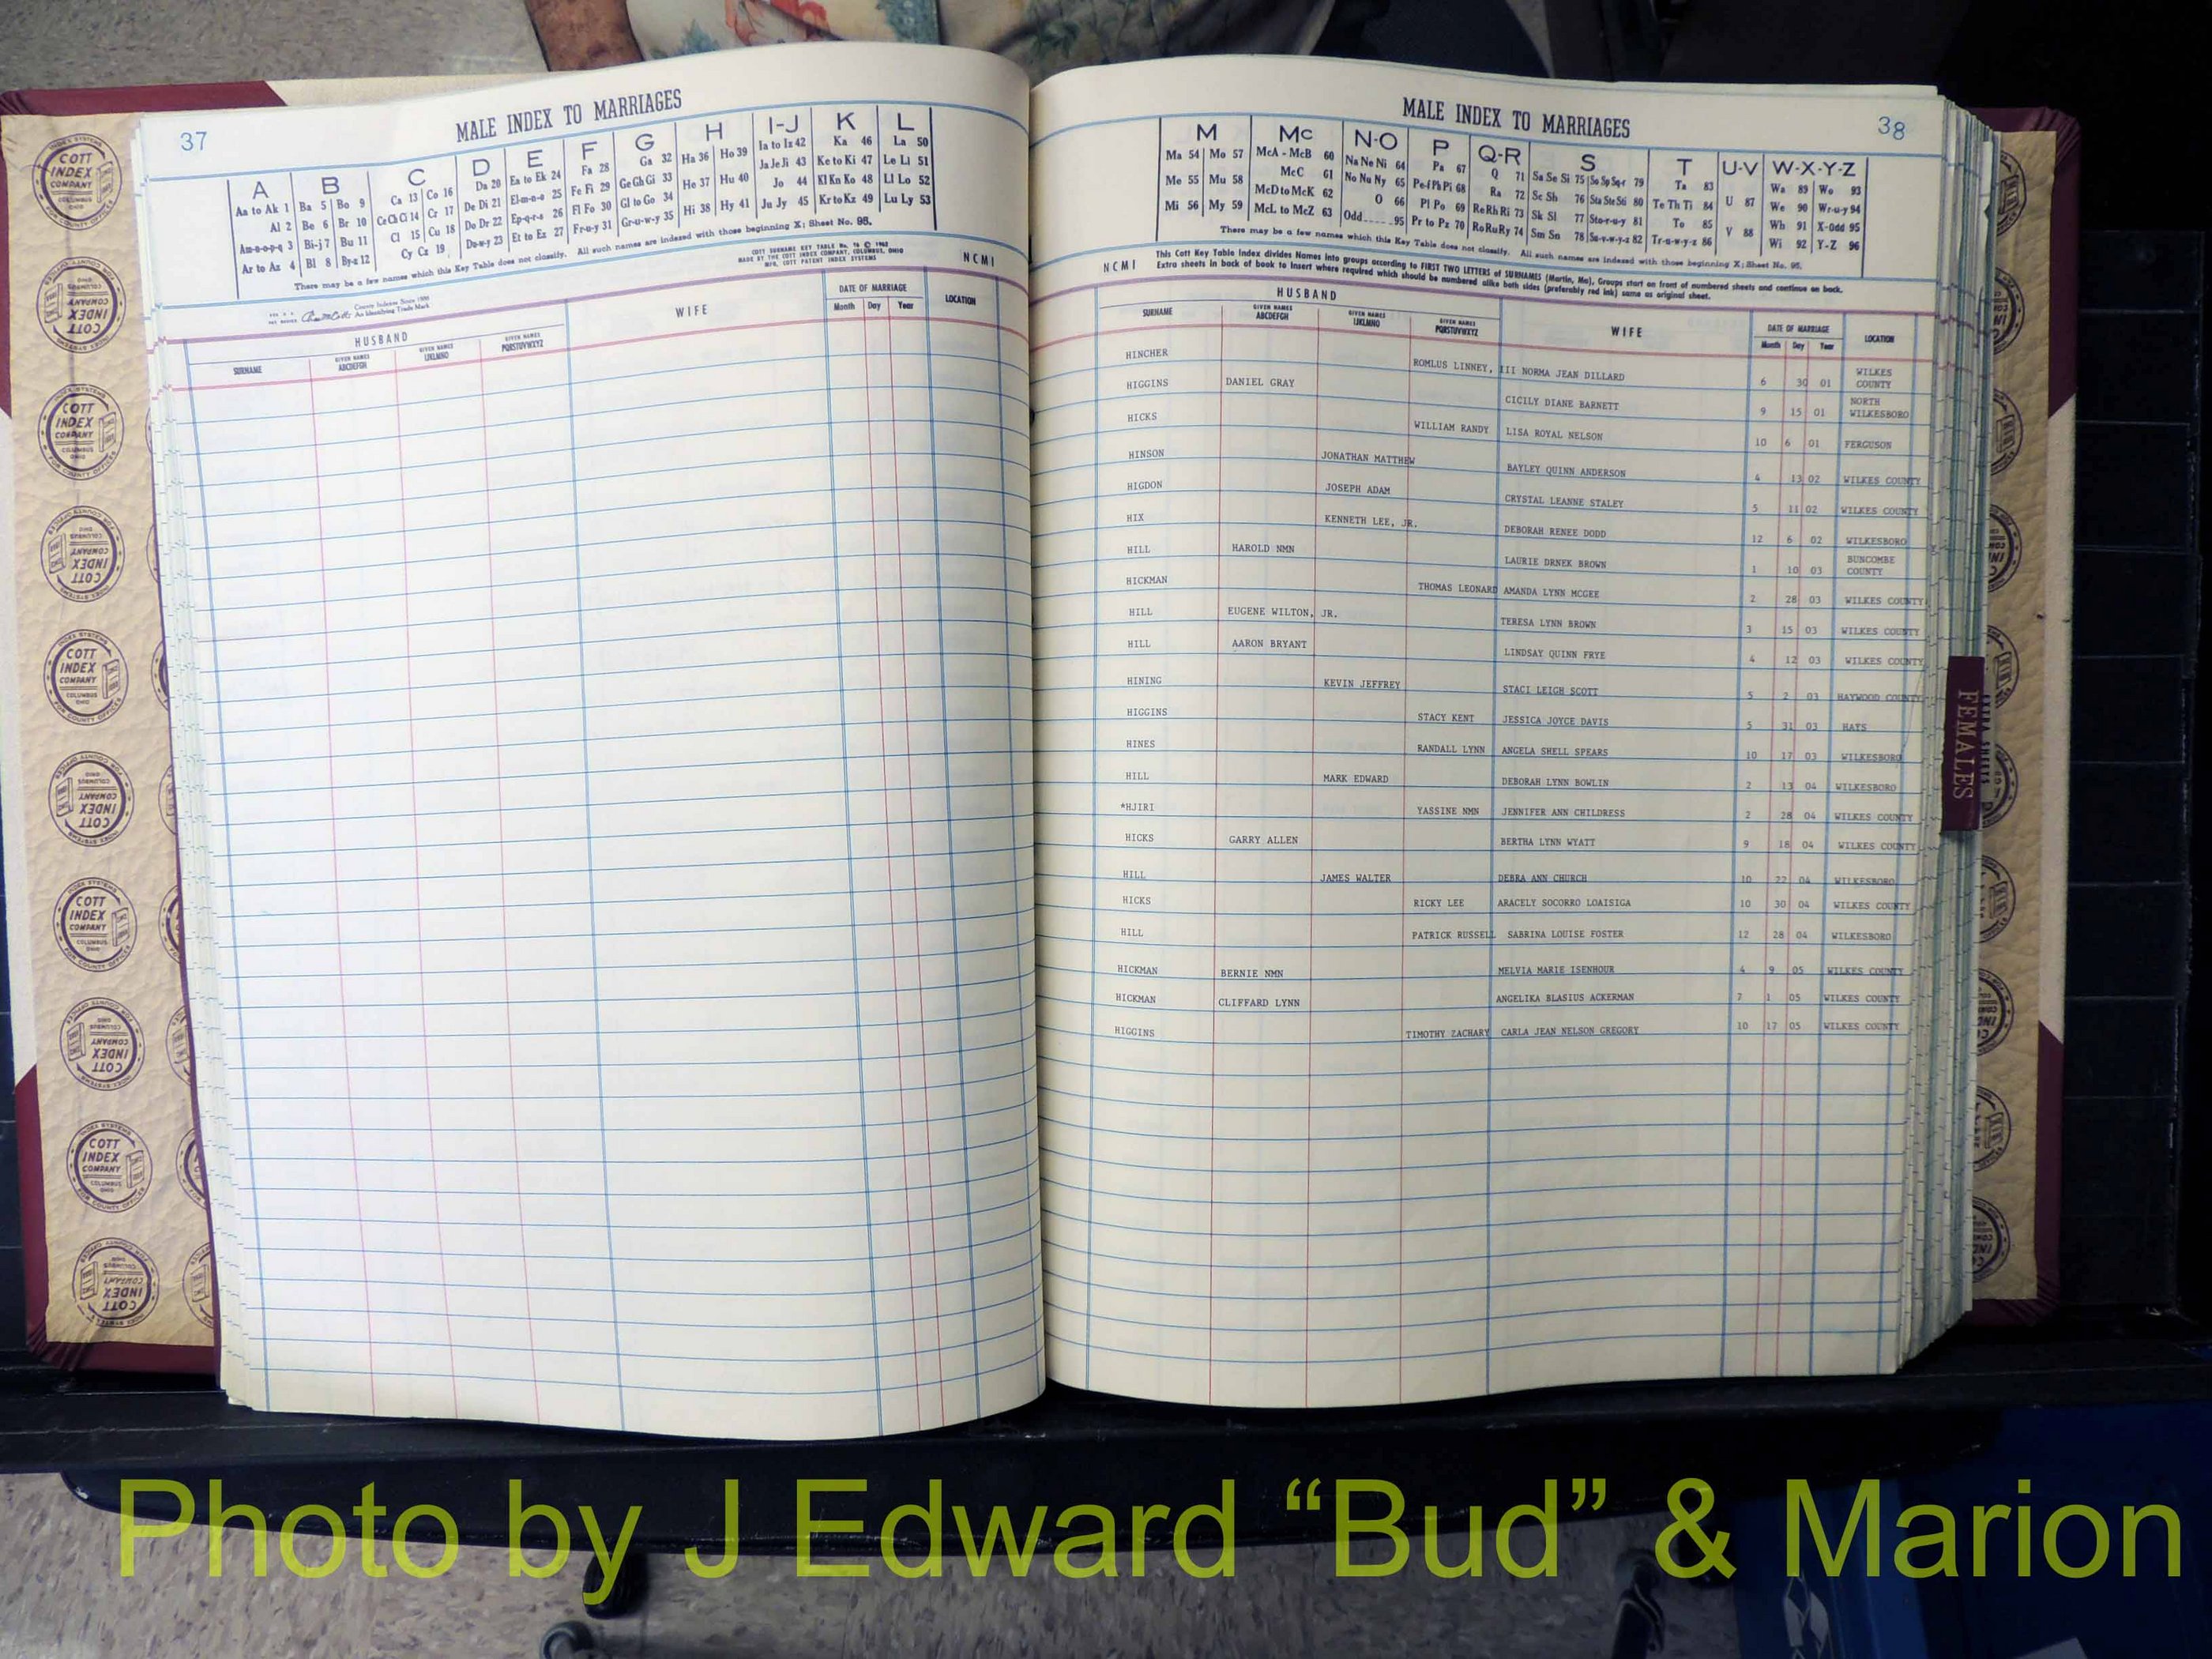 37
MALE INDEX TO MARRIAGES
A B C D E F G H I-J K L
Aa to Ak 1 Ba 5 Bo 9 Ca 13 Co 16 Da 20 Ea to Ek 24 Fa 28 Ga 32 Ha 36 Ho 39 Ia to Iz 42 Ka 46 La 50
Al 2 Be 6 Br 10 Ce Ch Ci 14 Cr 17 De Di 21 El-m-n-o 25 Fe Fi 29 Ge Gh Gi 33 He 37 Hu 40 Ja Je Ji 43 Ke to Ki 47 Le Li 51
Am-n-o-p-q 3 Bi-j 7 Bu 11 Cl 15 Cu 18 Do Dr 22 Ep-q-r-s 26 Fl Fo 30 Gl to Go 34 Hi 38 Hy 41 Jo 44 Kl Kn Ko 48 Ll Lo 52
Ar to Az 4 Bl 8 By-z 12 Cy Cz 19 Du-w-y 23 Et to Ez 27 Fr-u-y 31 Gr-u-w-y 35 Ju Jy 45 Kr to Kz 49 Lu Ly 53
There may be a few names which this Key Table does not classify. All such names are indexed with those beginning X; Sheet No. 95.
COTT SURNAME KEY TABLE No. 96 © 1962
MADE BY THE COTT INDEX COMPANY, COLUMBUS, OHIO
MFR. COTT PATENT INDEX SYSTEMS
NCMI
County Indexes Since 1890
An Identifying Trade Mark
HUSBAND WIFE DATE OF MARRIAGE LOCATION
SURNAME GIVEN NAMES ABCDEFGH GIVEN NAMES IJKLMNO GIVEN NAMES PQRSTUVWXYZ Month Day Year
38
MALE INDEX TO MARRIAGES
M Mc N-O P Q-R S T U-V W-X-Y-Z
Ma 54 Mo 57 McA - McB 60 Na Ne Ni 64 Pa 67 Q 71 Sa Se Si 75 So Sp Sq-r 79 Ta 83 U 87 Wa 89 Wo 93
Me 55 Mu 58 McC 61 No Nu Ny 65 Pe-f Ph Pi 68 Ra 72 Sc Sh 76 Sta Ste Sti 80 Te Th Ti 84 V 88 We 90 Wr-u-y 94
Mi 56 My 59 McD to McK 62 O 66 Pl Po 69 Re Rh Ri 73 Sk Sl 77 Sto-r-u-y 81 To 85 Wh 91 X-Odd 95
McL to McZ 63 Odd 95 Pr to Pz 70 Ro Ru Ry 74 Sm Sn 78 Su-v-w-y-z 82 Tr-u-w-y-z 86 Wi 92 Y-Z 96
There may be a few names which this Key Table does not classify. All such names are indexed with those beginning X; Sheet No. 95.
NCMI
This Cott Key Table Index divides Names into groups according to FIRST TWO LETTERS of SURNAMES (Martin, Ma), Groups start on front of numbered sheets and continue on back.
Extra sheets in back of book to insert where required which should be numbered alike both sides (preferably red ink) same as original sheet.
HUSBAND WIFE DATE OF MARRIAGE LOCATION
SURNAME GIVEN NAMES ABCDEFGH GIVEN NAMES IJKLMNO GIVEN NAMES PQRSTUVWXYZ Month Day Year
HINCHER ROMLUS LINNEY, III NORMA JEAN DILLARD 6 30 01 WILKES COUNTY
HIGGINS DANIEL GRAY CICILY DIANE BARNETT 9 15 01 NORTH WILKESBORO
HICKS WILLIAM RANDY LISA ROYAL NELSON 10 6 01 FERGUSON
HINSON JONATHAN MATTHEW BAYLEY QUINN ANDERSON 4 13 02 WILKES COUNTY
HIGDON JOSEPH ADAM CRYSTAL LEANNE STALEY 5 11 02 WILKES COUNTY
HIX KENNETH LEE, JR. DEBORAH RENEE DODD 12 6 02 WILKESBORO
HILL HAROLD NMN LAURIE DRNEK BROWN 1 10 03 BUNCOMBE COUNTY
HICKMAN THOMAS LEONARD AMANDA LYNN MCGEE 2 28 03 WILKES COUNTY
HILL EUGENE WILTON, JR. TERESA LYNN BROWN 3 15 03 WILKES COUNTY
HILL AARON BRYANT LINDSAY QUINN FRYE 4 12 03 WILKES COUNTY
HINING KEVIN JEFFREY STACI LEIGH SCOTT 5 2 03 HAYWOOD COUNTY
HIGGINS STACY KENT JESSICA JOYCE DAVIS 5 31 03 HAYS
HINES RANDALL LYNN ANGELA SHELL SPEARS 10 17 03 WILKESBORO
HILL MARK EDWARD DEBORAH LYNN BOWLIN 2 13 04 WILKESBORO
*HJIRI YASSINE NMN JENNIFER ANN CHILDRESS 2 28 04 WILKES COUNTY
HICKS GARRY ALLEN BERTHA LYNN WYATT 9 18 04 WILKES COUNTY
HILL JAMES WALTER DEBRA ANN CHURCH 10 22 04 WILKESBORO
HICKS RICKY LEE ARACELY SOCORRO LOAISIGA 10 30 04 WILKES COUNTY
HILL PATRICK RUSSELL SABRINA LOUISE FOSTER 12 28 04 WILKESBORO
HICKMAN BERNIE NMN MELVIA MARIE ISENHOUR 4 9 05 WILKES COUNTY
HICKMAN CLIFFARD LYNN ANGELIKA BLASIUS ACKERMAN 7 1 05 WILKES COUNTY
HIGGINS TIMOTHY ZACHARY CARLA JEAN NELSON GREGORY 10 17 05 WILKES COUNTY
FEMALES
COTT INDEX COMPANY
COLUMBUS OHIO
INDEX SYSTEMS
FOR COUNTY OFFICES
Photo by J Edward “Bud” & Marion